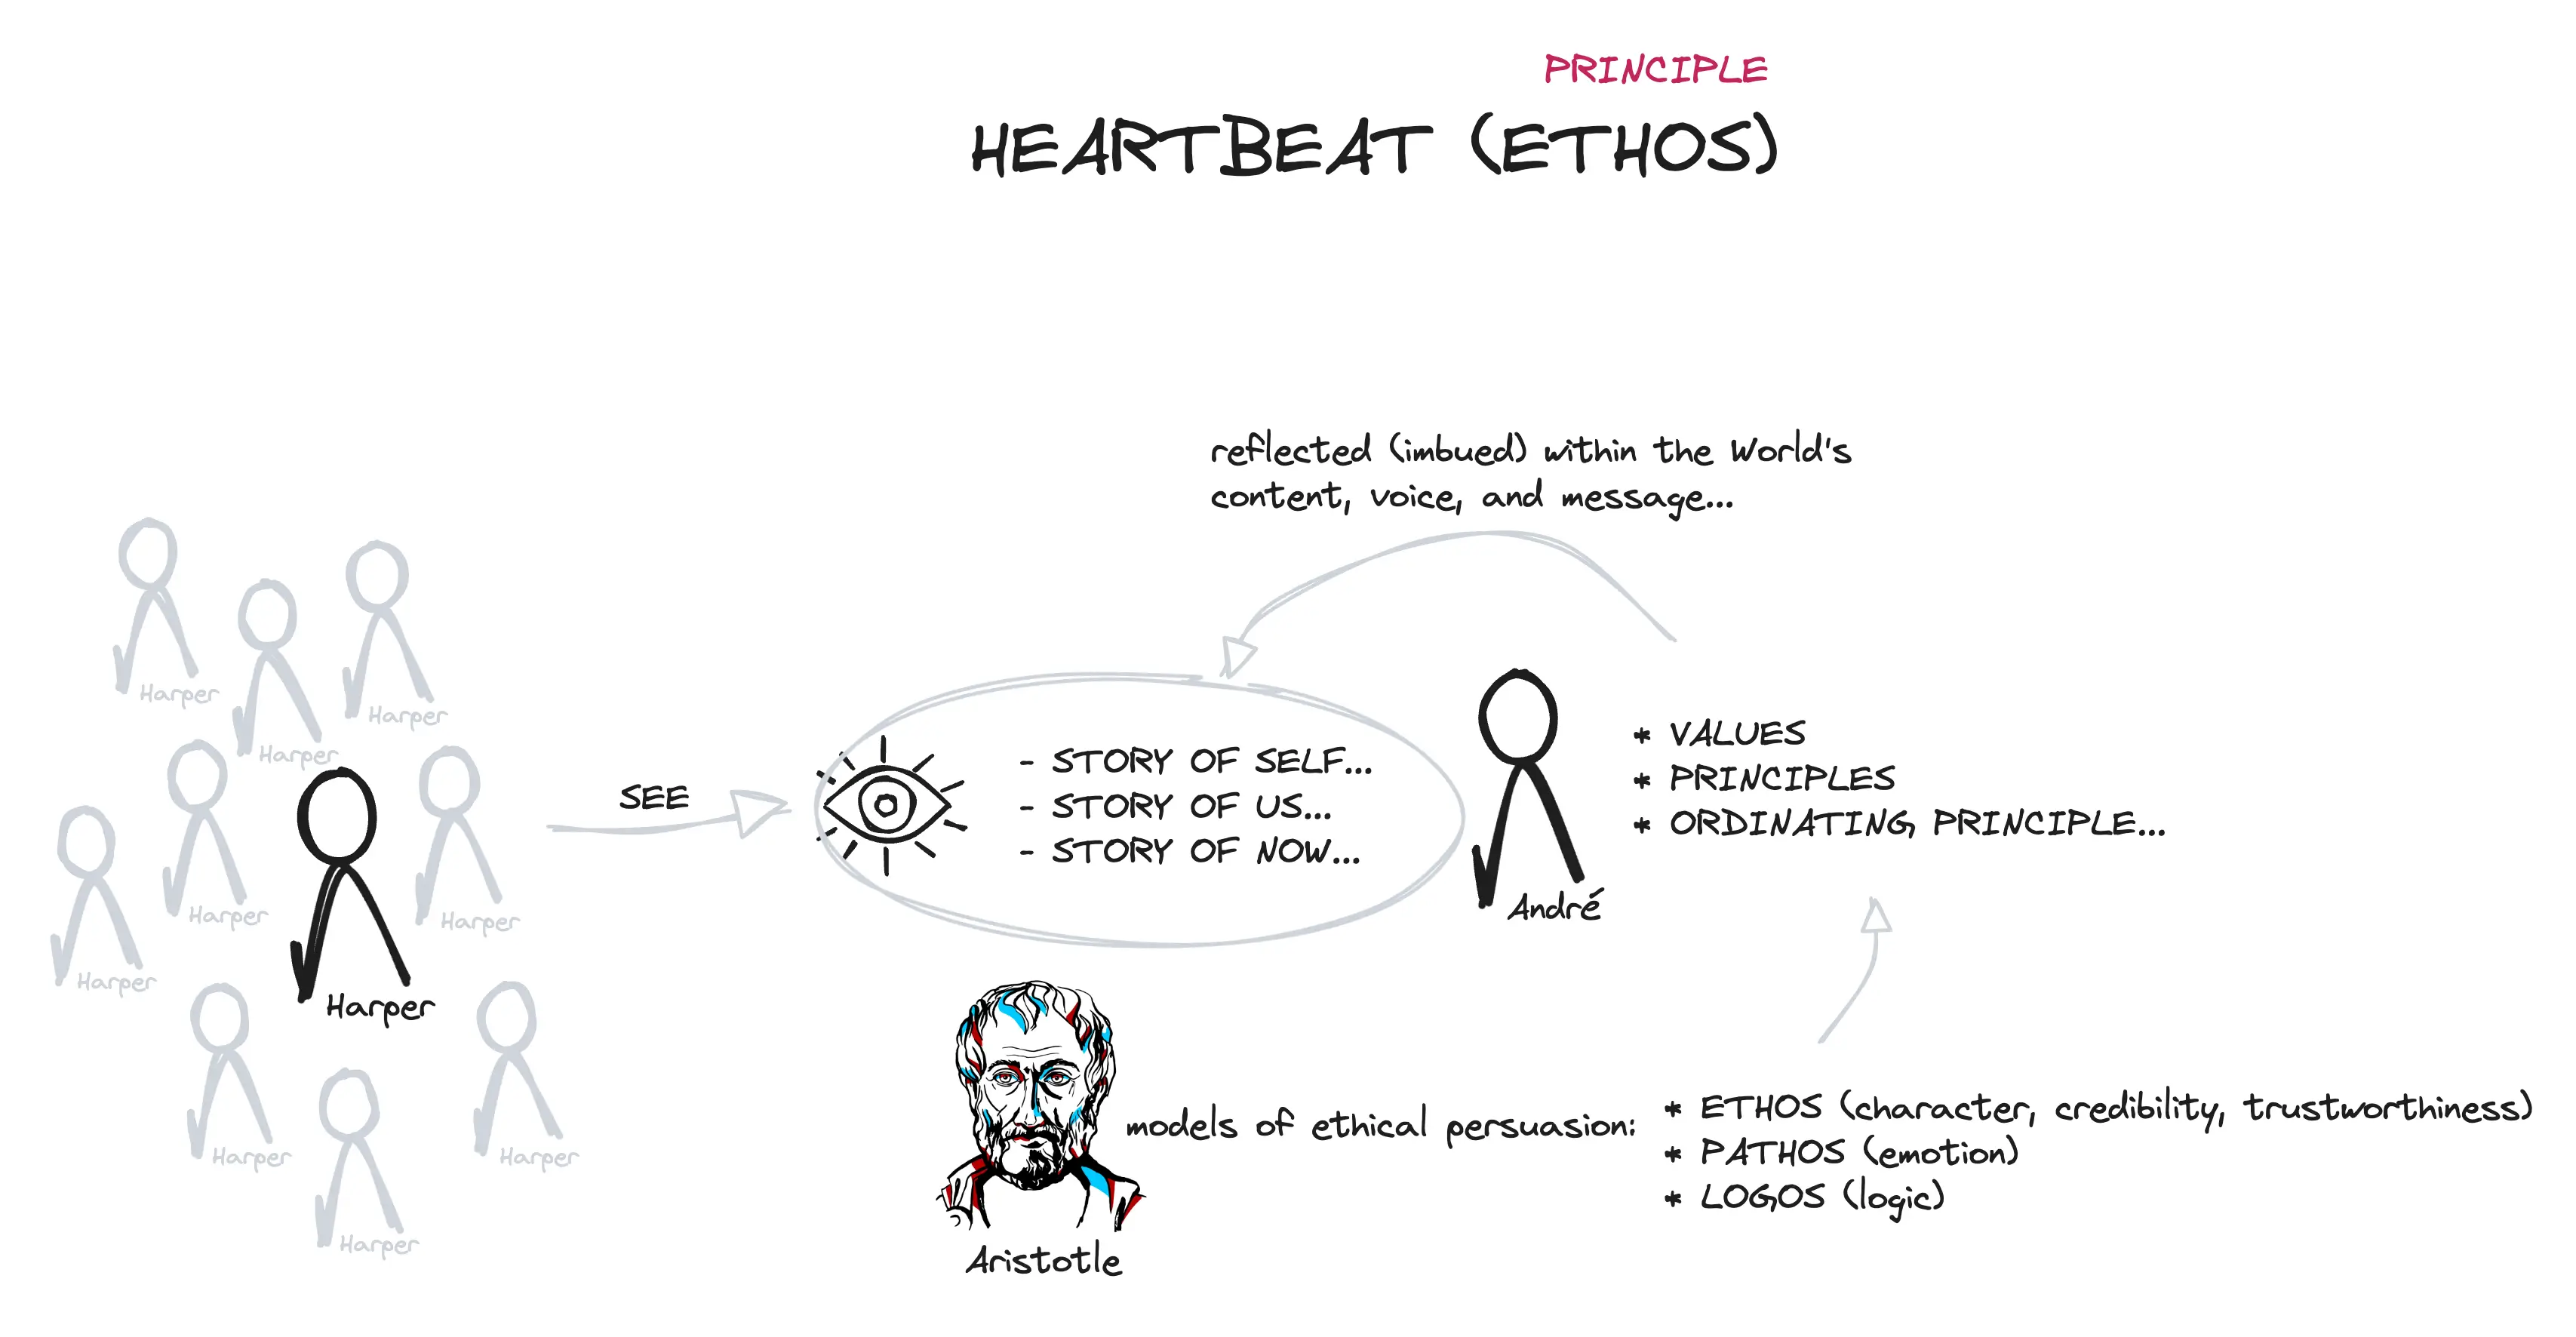 PRINCIPLE
HEARTBEAT (ETHOS)
reflected (imbued) within the World's
content, voice, and message...
Harper
Harper
Harper
Harper
Harper
Harper
Harper
Harper
Harper
Harper
SEE
- STORY OF SELF...
- STORY OF US...
- STORY OF NOW...
André
* VALUES
* PRINCIPLES
* ORDINATING PRINCIPLE...
Aristotle
models of ethical persuasion:
* ETHOS (character, credibility, trustworthiness)
* PATHOS (emotion)
* LOGOS (logic)